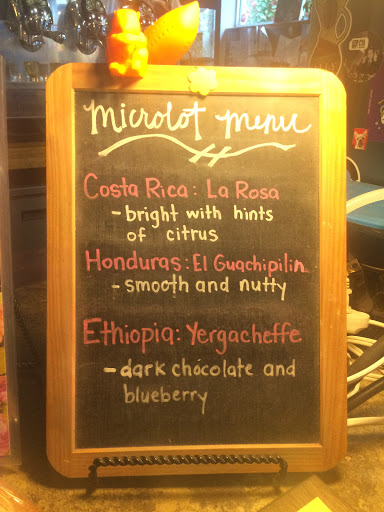 microlot menu
Costa Rica: La Rosa
- bright with hints
of citrus
Honduras: El Guachipilin
- smooth and nutty
Ethiopia: Yergacheffe
- dark chocolate and
blueberry